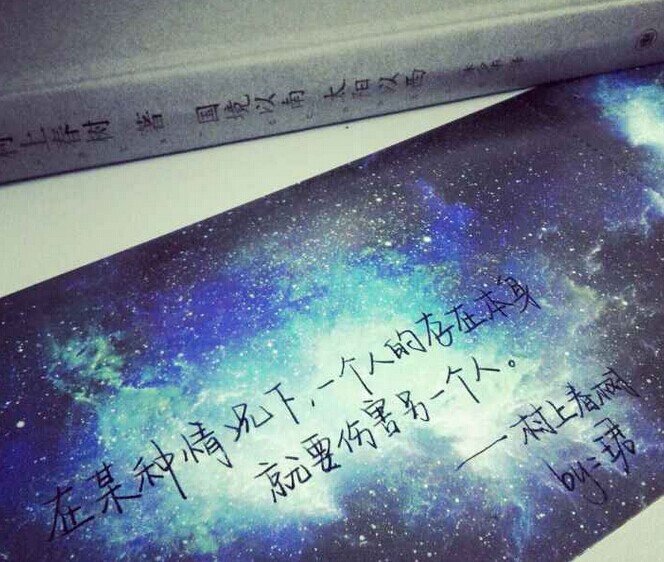 村上春树 著 国境以南 太阳以西
在某种情况下,一个人的存在本身
就要伤害另一个人。
——村上春树
by:珺